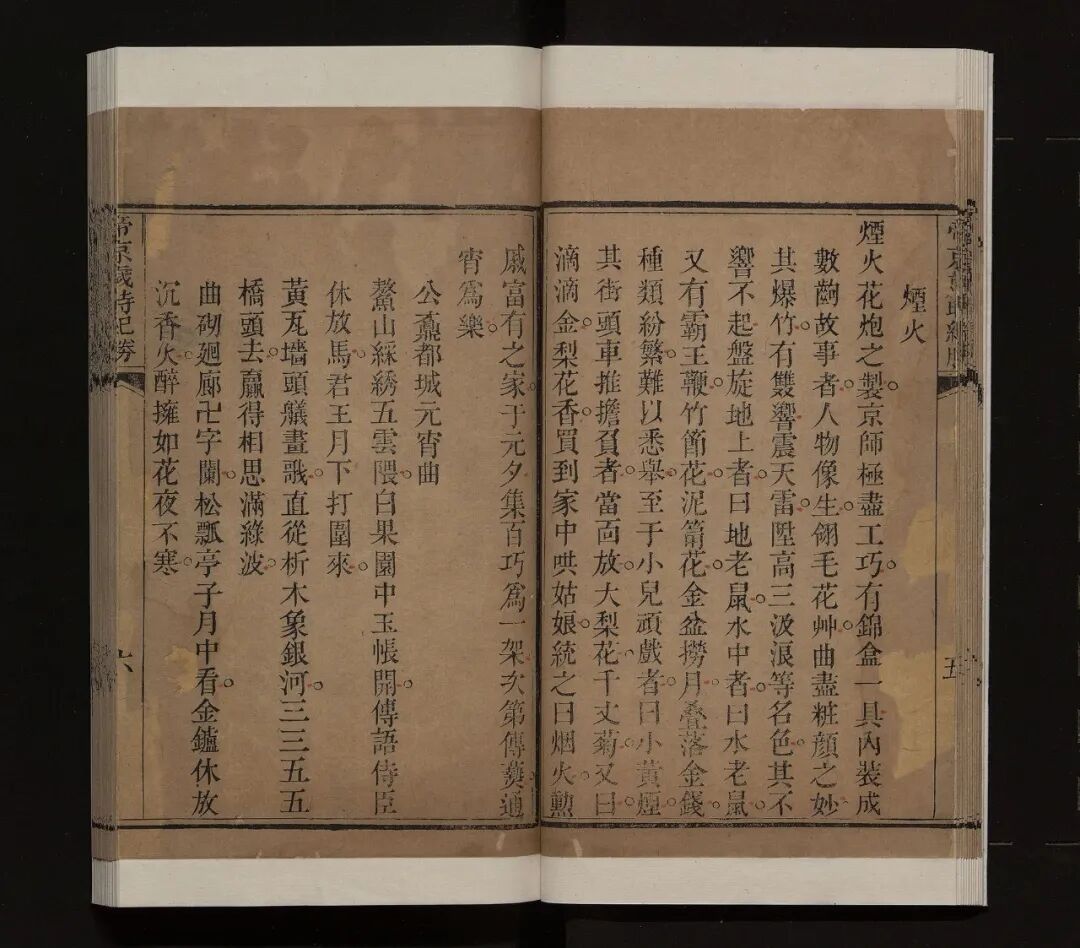 帝京歲時紀勝
五
煙火
煙火花炮之製京師極盡工巧有錦盒一具內裝成
數齣故事者人物像生翎毛花艸曲盡粧顔之妙
其爆竹有雙響震天雷陞高三汲浪等名色其不
響不起盤旋地上者曰地老鼠水中者曰水老鼠
又有霸王鞭竹節花泥筩花金盆撈月疊落金錢
種類紛繁難以悉舉至于小兒頑戲者曰小黃煙
其街頭車推擔負者當面放大梨花千丈菊又曰
滴滴金梨花香買到家中哄姑娘統之曰烟火勲
戚富有之家于元夕集百巧爲一架次第傳爇通
宵爲樂
公鼐都城元宵曲
鰲山綵綉五雲隈白果園中玉帳開傳語侍臣
休放馬君王月下打圍來
黃瓦墻頭艤畫戨直從析木象銀河三三五五
橋頭去贏得相思滿綠波
曲砌廻廊卍字闌松瓢亭子月中看金鑪休放
沉香火醉擁如花夜不寒
帝京歲時紀勝
六